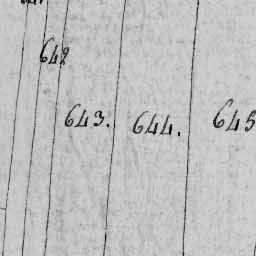 642
643. 644. 645